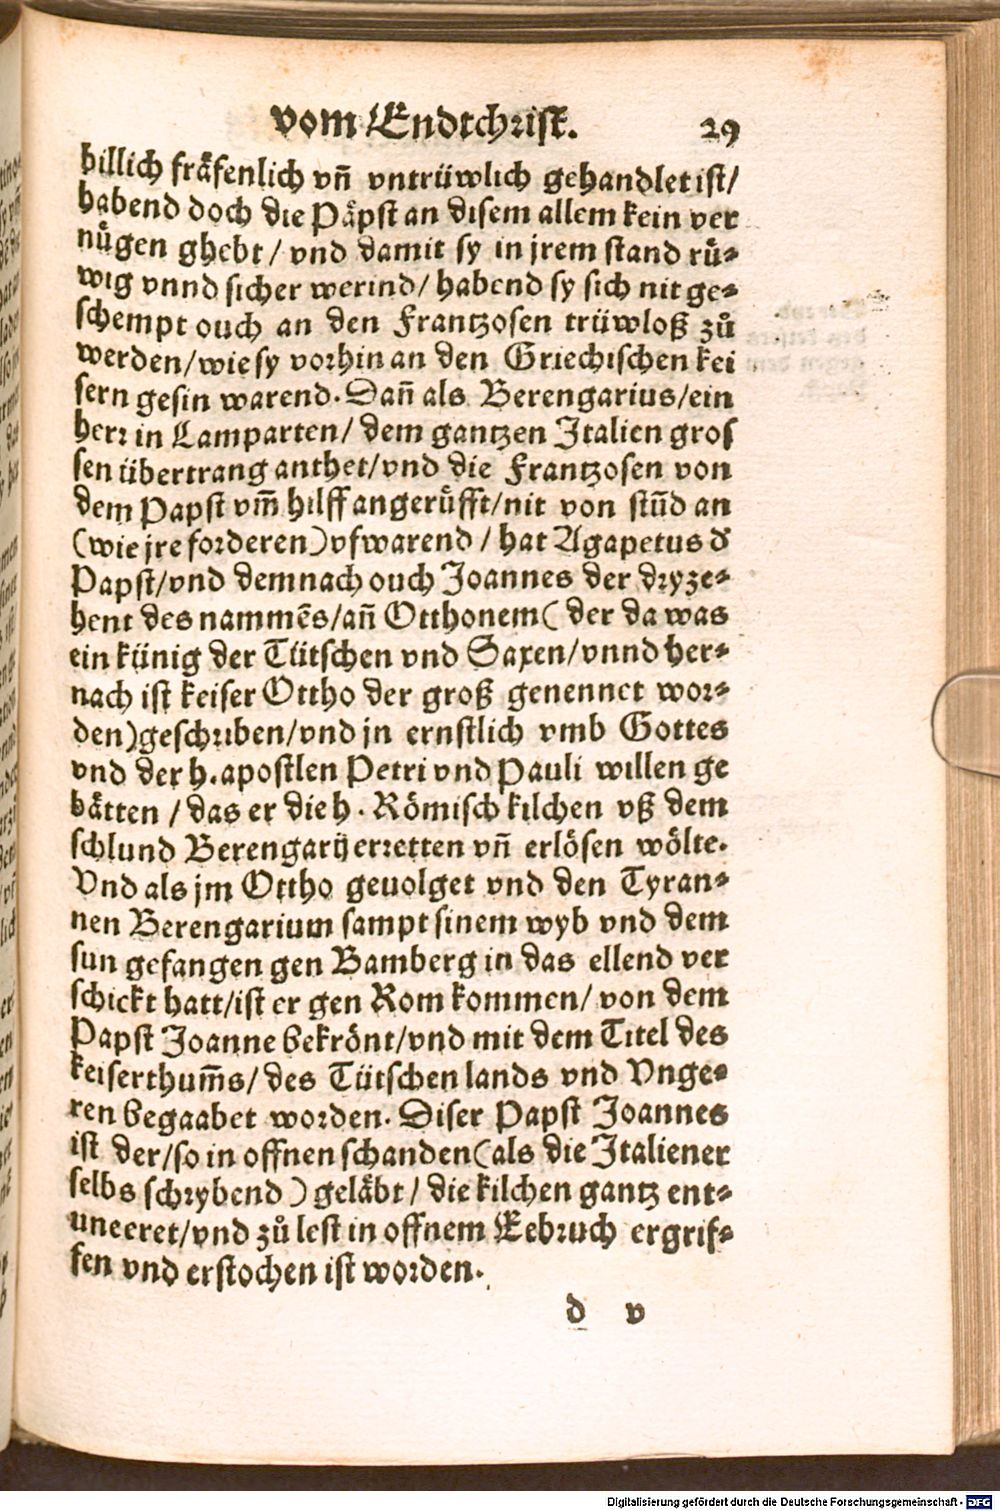 vom Endtchrist. 29
billich fräfenlich vñ vntrüwlich gehandlet ist/
habend doch die Päpst an disem allem kein ver
nuͤgen ghebt / vnd damit sy in jrem stand ruͤ⸗
wig vnnd sicher werind/ habend sy sich nit ge⸗
schempt ouch an den Frantzosen trüwloß zuͦ
werden/wie sy vorhin an den Griechischen kei
sern gesin warend. Dañ als Berengarius/ein
herr in Lamparten/ dem gantzen Italien gros
sen übertrang anthet/vnd die Frantzosen von
dem Papst vm̃ hilff angeruͤfft/nit von stũd an
(wie jre forderen) vfwarend / hat Agapetus ď
Papst/vnd demnach ouch Joannes der dryze⸗
hent des nammẽs/añ Otthonem ( der da was
ein künig der Tütschen vnd Saxen/vnnd her⸗
nach ist keiser Ottho der groß genennet wor⸗
den) geschriben/vnd jn ernstlich vmb Gottes
vnd der h. apostlen Petri vnd Pauli willen ge
bätten / das er die h. Römisch kilchen vß dem
schlund Berengarij erretten vñ erlösen wölte.
Vnd als jm Ottho geuolget vnd den Tyran⸗
nen Berengarium sampt sinem wyb vnd dem
sun gefangen gen Bamberg in das ellend ver
schickt hatt/ist er gen Rom kommen/ von dem
Papst Joanne bekrönt/vnd mit dem Titel des
keiserthum̃s/ des Tütschen lands vnd Vnge⸗
ren begaabet worden. Diser Papst Joannes
ist der/so in offnen schanden (als die Italiener
selbs schrybend ) geläbt / die kilchen gantz ent⸗
uneeret/vnd zuͦ lest in offnem Eebruch ergrif⸗
fen vnd erstochen ist worden.
d v
Digitalisierung gefördert durch die Deutsche Forschungsgemeinschaft - DFG